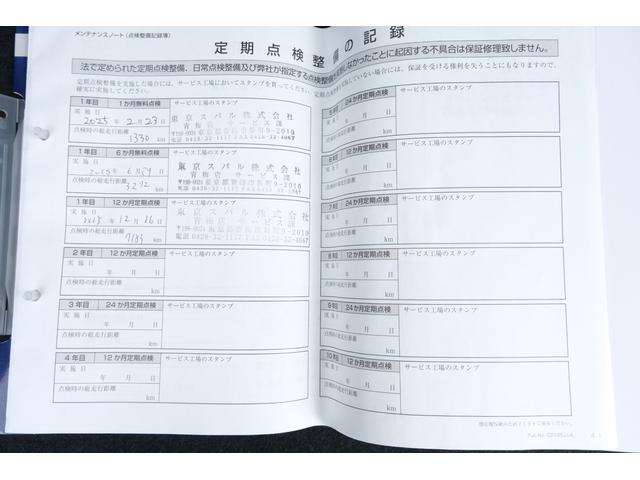 メンテナンスノート（点検整備記録簿）
定期点検整備の記録
法で定められた定期点検整備、日常点検整備及び弊社が指定する点検整備を実施しなかったことに起因する不具合は保証修理致しません。
定期点検整備を実施した場合には、サービス工場においてスタンプを貰ってください。
確実に実施してください。
ていない場合には、保証を受ける権利を失うことにもなりますので、
1年目 1か月無料点検 サービス工場のスタンプ
実施日
2025年2月23日
点検時の総走行距離
1330 km
東京スバル株式会社
青梅店 サービス課
〒198-0024 東京都青梅市新町9-2010
電話 0428-32-1117 FAX 0428-32-4067
1年目 6か月無料点検 サービス工場のスタンプ
実施日
2025年6月29日
点検時の総走行距離
3292 km
東京スバル株式会社
青梅店 サービス課
〒198-0024 東京都青梅市新町9-2010
電話 0428-32-1117 FAX 0428-32-4067
1年目 12か月定期点検 サービス工場のスタンプ
実施日
2025年12月26日
点検時の総走行距離
km
東京スバル株式会社
青梅店 サービス課
〒198-0024 東京都青梅市新町9-2010
電話 0428-32-1117 FAX 0428-32-4067
2年目 12か月定期点検 サービス工場のスタンプ
実施日
年 月 日
点検時の総走行距離
km
3年目 24か月定期点検 サービス工場のスタンプ
実施日
年 月 日
点検時の総走行距離
km
4年目 12か月定期点検 サービス工場のスタンプ
実施日
年 月 日
点検時の総走行距離
km
24か月定期点検 サービス工場のスタンプ
年 月 日
点検時の総走行距離
km
6年目 12か月定期点検 サービス工場のスタンプ
年 月 日
点検時の総走行距離
km
7年目 24か月定期点検 サービス工場のスタンプ
年 月 日
点検時の総走行距離
km
8年目 12か月定期点検 サービス工場のスタンプ
年 月 日
点検時の総走行距離
km
9年目 24か月定期点検 サービス工場のスタンプ
年 月 日
点検時の総走行距離
km
10年目 12か月定期点検 サービス工場のスタンプ
年 月 日
点検時の総走行距離
km